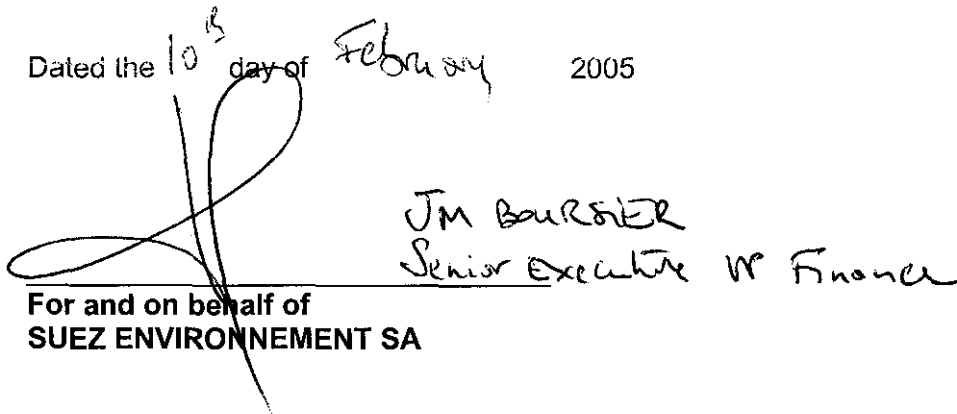 Dated the 10th day of February 2005
JM BOURSIER
Senior Executive VP Finance
For and on behalf of
SUEZ ENVIRONNEMENT SA